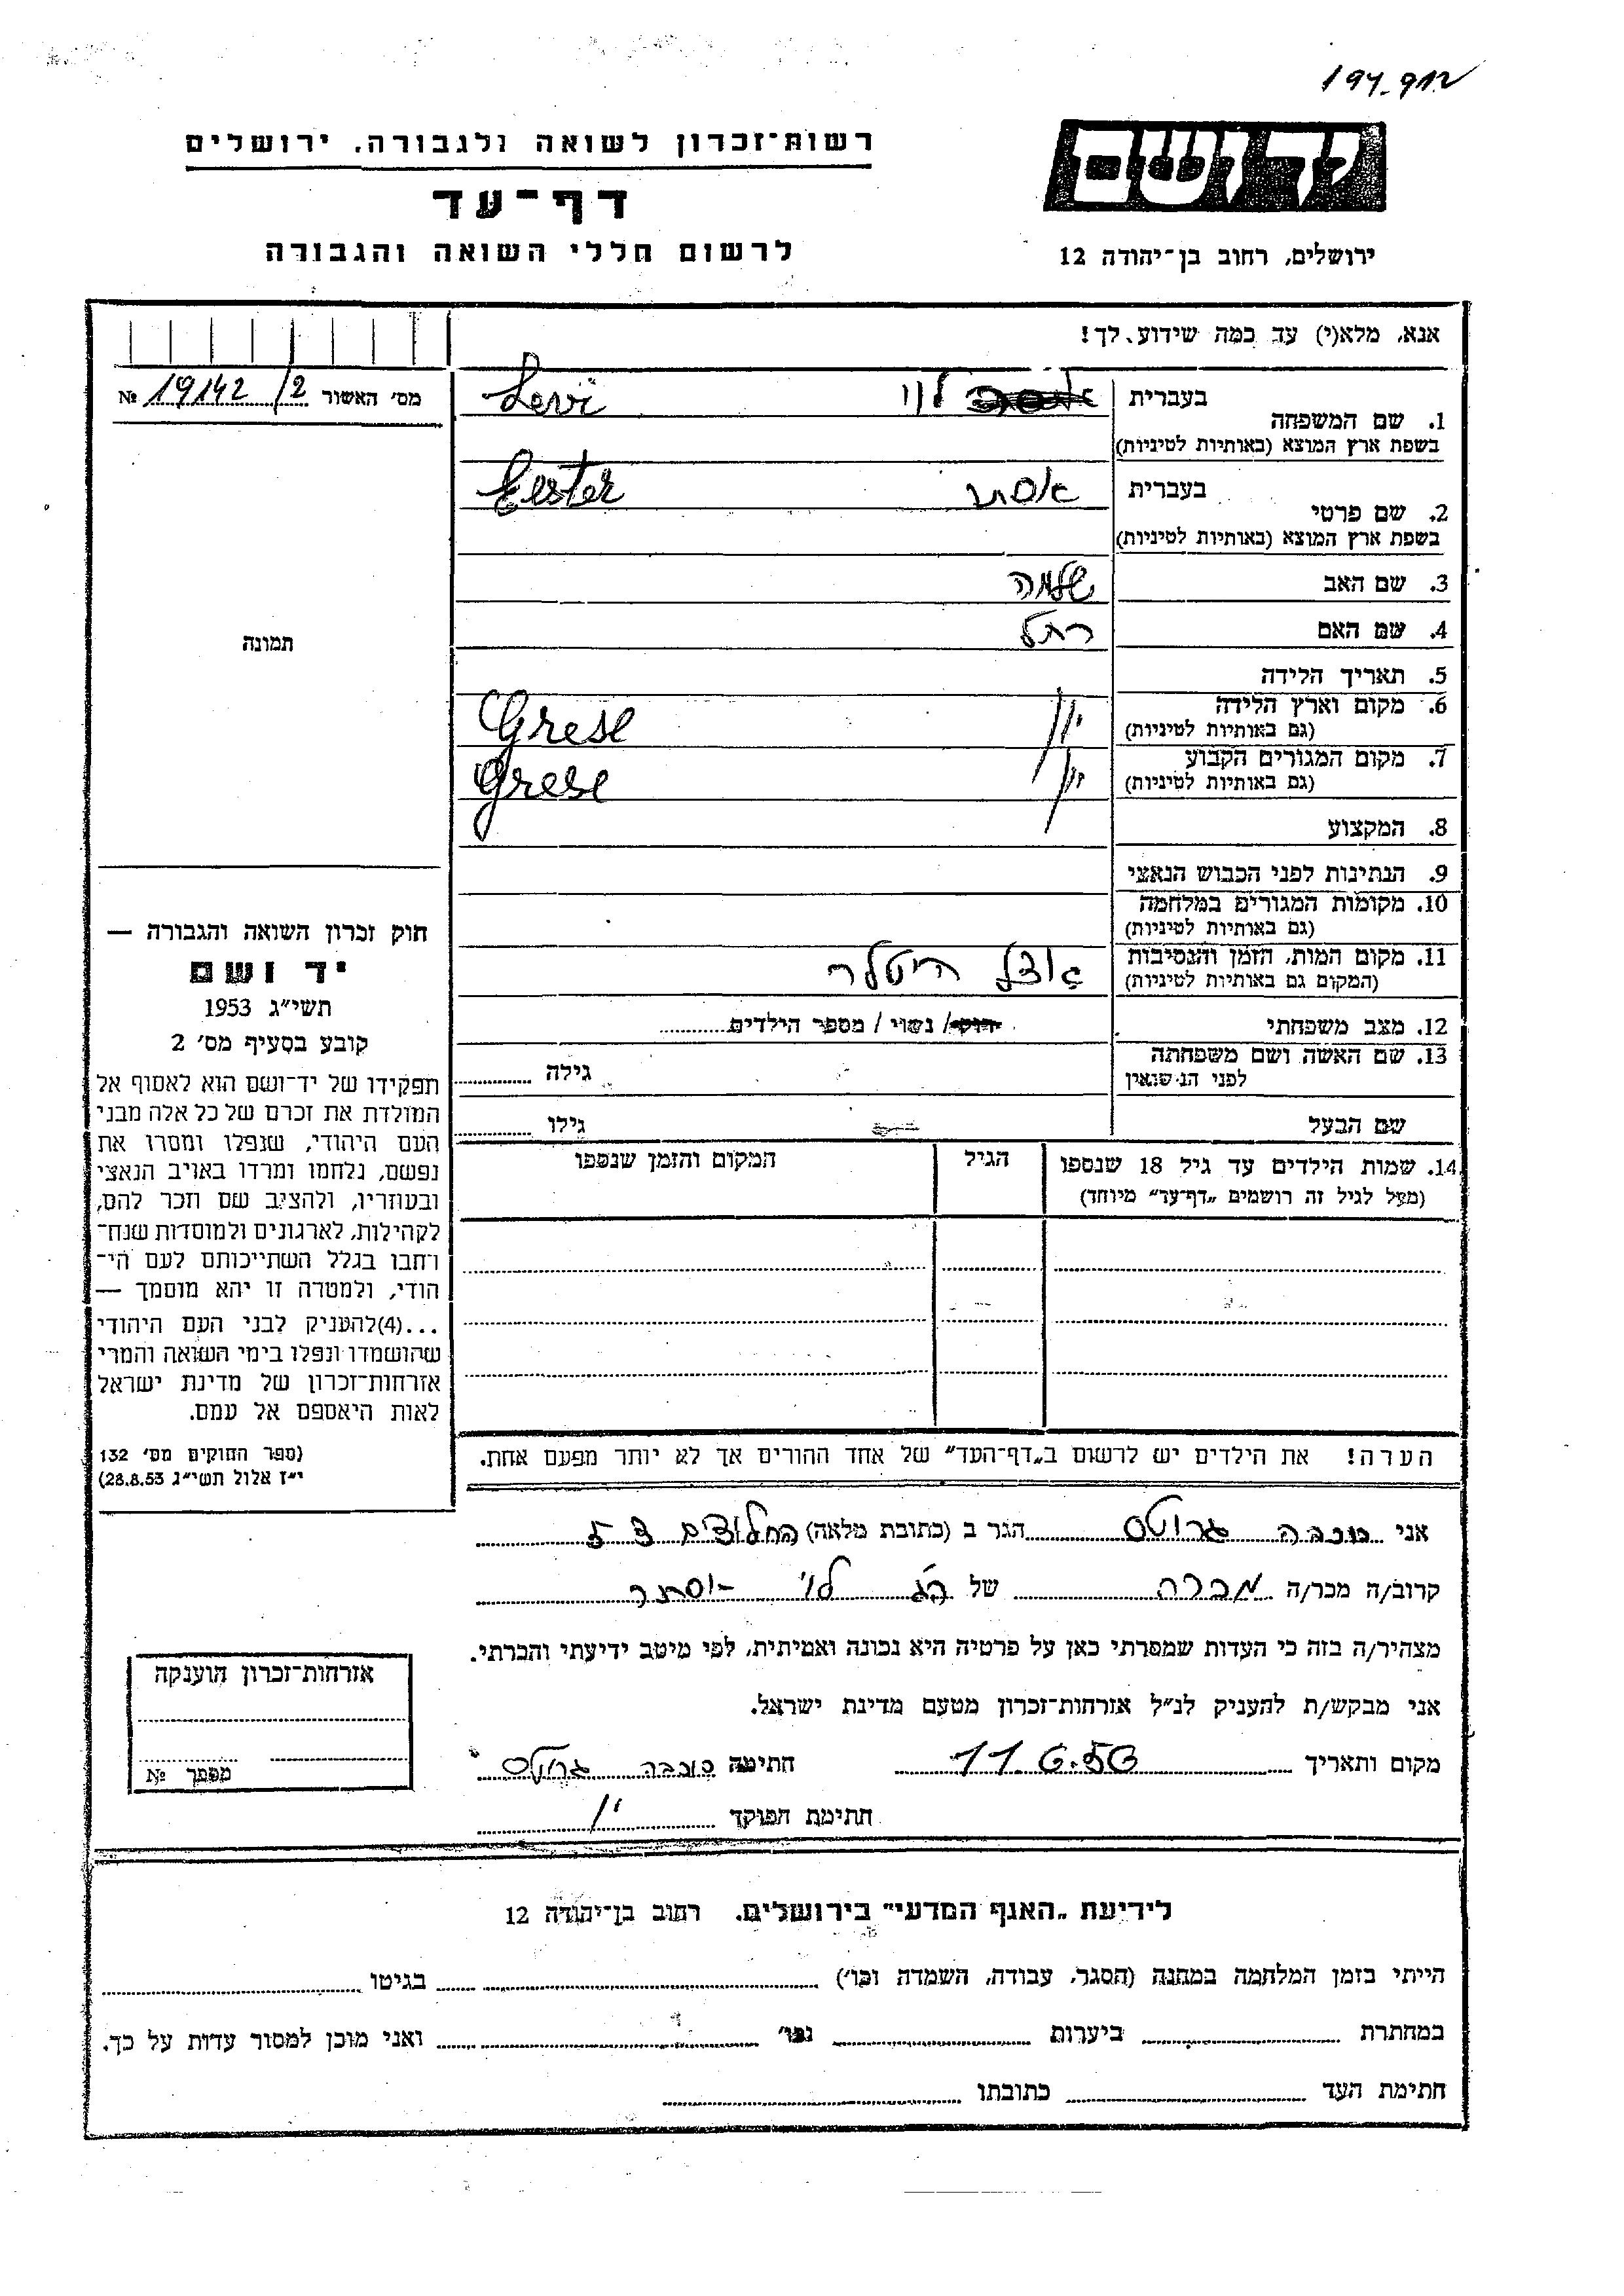 194-912
רשות־זכרון לשואה ולגבורה. ירושלים
דף־עד
לרשום חללי השואה והגבורה
ידושם
ירושלים, רחוב בן־יהודה 12
אנא, מלא(י) עד כמה שידוע לך!
מס׳ האשור 19142/2 №
1. שם המשפחה
בעברית לוי Levi
בשפת ארץ המוצא (באותיות לטיניות)
2. שם פרטי
בעברית אסתר Eester
בשפת ארץ המוצא (באותיות לטיניות)
3. שם האב שלמה
4. שם האם רחל
5. תאריך הלידה
6. מקום וארץ הלידה יון Grese
(גם באותיות לטיניות)
7. מקום המגורים הקבוע יון Grese
(גם באותיות לטיניות)
8. המקצוע
9. הנתינות לפני הכבוש הנאצי
10. מקומות המגורים במלחמה
(גם באותיות לטיניות)
11. מקום המות, הזמן והנסיבות אצל היטלר
(המקום גם באותיות לטיניות)
12. מצב משפחתי רווק / נשוי / מספר הילדים
13. שם האשה ושם משפחתה
לפני הנשואין גילה
שם הבעל גילו
14. שמות הילדים עד גיל 18 שנספו הגיל המקום והזמן שנספו
(מעל לגיל זה רושמים „דף־עד״ מיוחד)
הערה! את הילדים יש לרשום ב„דף־העד״ של אחד ההורים אך לא יותר מפעם אחת.
תמונה
חוק זכרון השואה והגבורה —
יד ושם
תשי״ג 1953
קובע בסעיף מס׳ 2
תפקידו של יד־ושם הוא לאסוף אל
המולדת את זכרם של כל אלה מבני
העם היהודי, שנפלו ומסרו את
נפשם, נלחמו ומרדו באויב הנאצי
ובעוזריו, ולהציב שם וזכר להם,
לקהילות, לארגונים ולמוסדות שנח־
רחבו בגלל השתייכותם לעם הי־
הודי, ולמטרה זו יהא מוסמך —
...(4)להעניק לבני העם היהודי
שהושמדו ונפלו בימי השואה והמרי
אזרחות־זכרון של מדינת ישראל
לאות היאספם אל עמם.
(ספר החוקים מס׳ 132
י״ז אלול תשי״ג 28.8.53)
אני כוכבה גרוטס הגר ב (כתובת מלאה) החלוצים 5
קרוב/ה מכר/ה מכרה של לוי אסתר
מצהיר/ה בזה כי העדות שמסרתי כאן על פרטיה היא נכונה ואמיתית, לפי מיטב ידיעתי והכרתי.
אני מבקש/ת להעניק לנ״ל אזרחות־זכרון מטעם מדינת ישראל.
מקום ותאריך 11.6.56 חתימה כוכבה גרוטס
חתימת הפוקד
אזרחות־זכרון הוענקה
מספר №
לידיעת „האגף המדעי״ בירושלים. רחוב בן־יהודה 12
הייתי בזמן המלחמה במחנה (הסגר, עבודה, השמדה וכו׳) בגיטו
במחתרת ביערות וכו׳ ואני מוכן למסור עדות על כך.
חתימת העד כתובתו